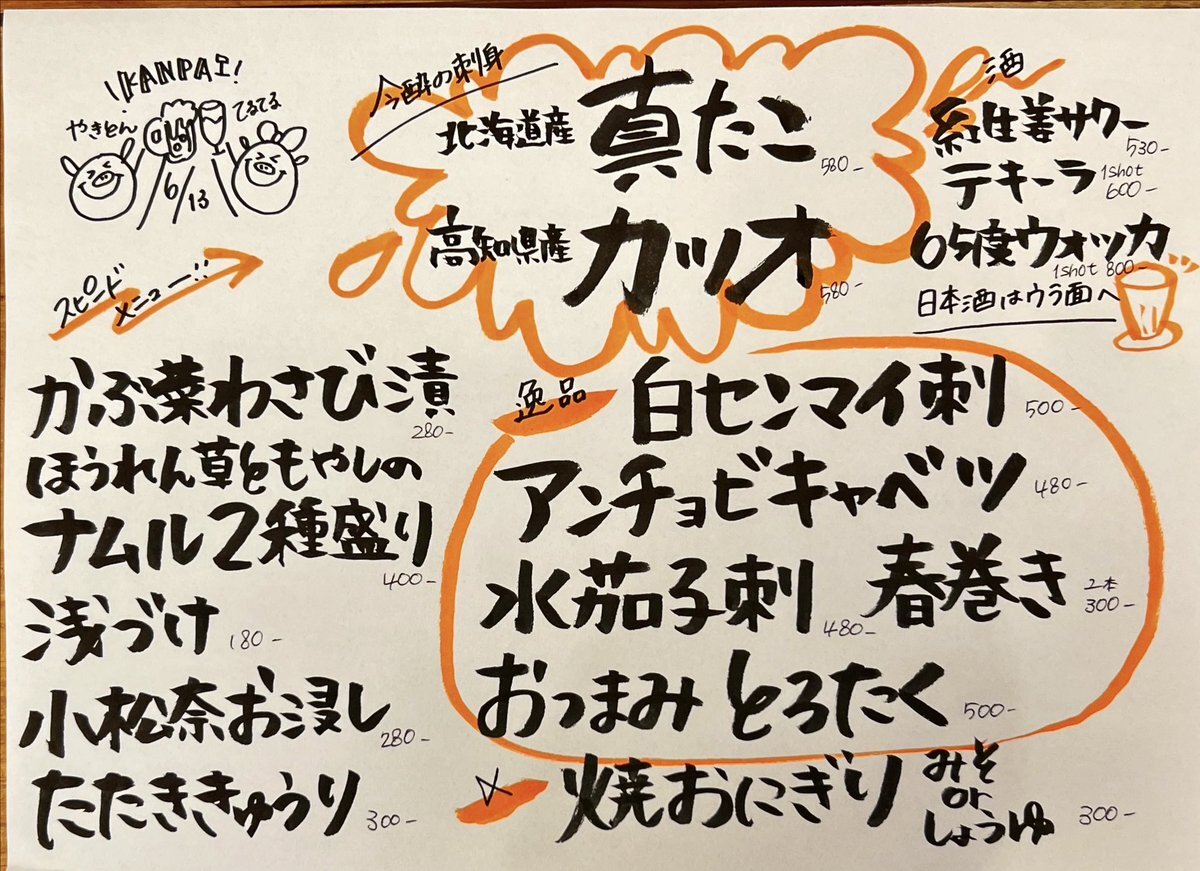 KANPAI!
やきとん
てるてる
6/13
今酔の刺身
北海道産 真たこ 580-
高知県産 カツオ 580-
酒
紅生姜サワー 530-
テキーラ 1shot 600-
65度ウォッカ 1shot 800-
日本酒はウラ面へ
スピードメニュー!!
かぶ菜わさび漬 280-
ほうれん草ともやしの
ナムル2種盛り 400-
浅づけ 180-
小松奈お浸し 280-
たたききゅうり 300-
逸品
白センマイ刺 500-
アンチョビキャベツ 480-
水茄子刺 480- 春巻き 2本 300-
おつまみとろたく 500-
〆 焼おにぎり みそ or しょうゆ 300-